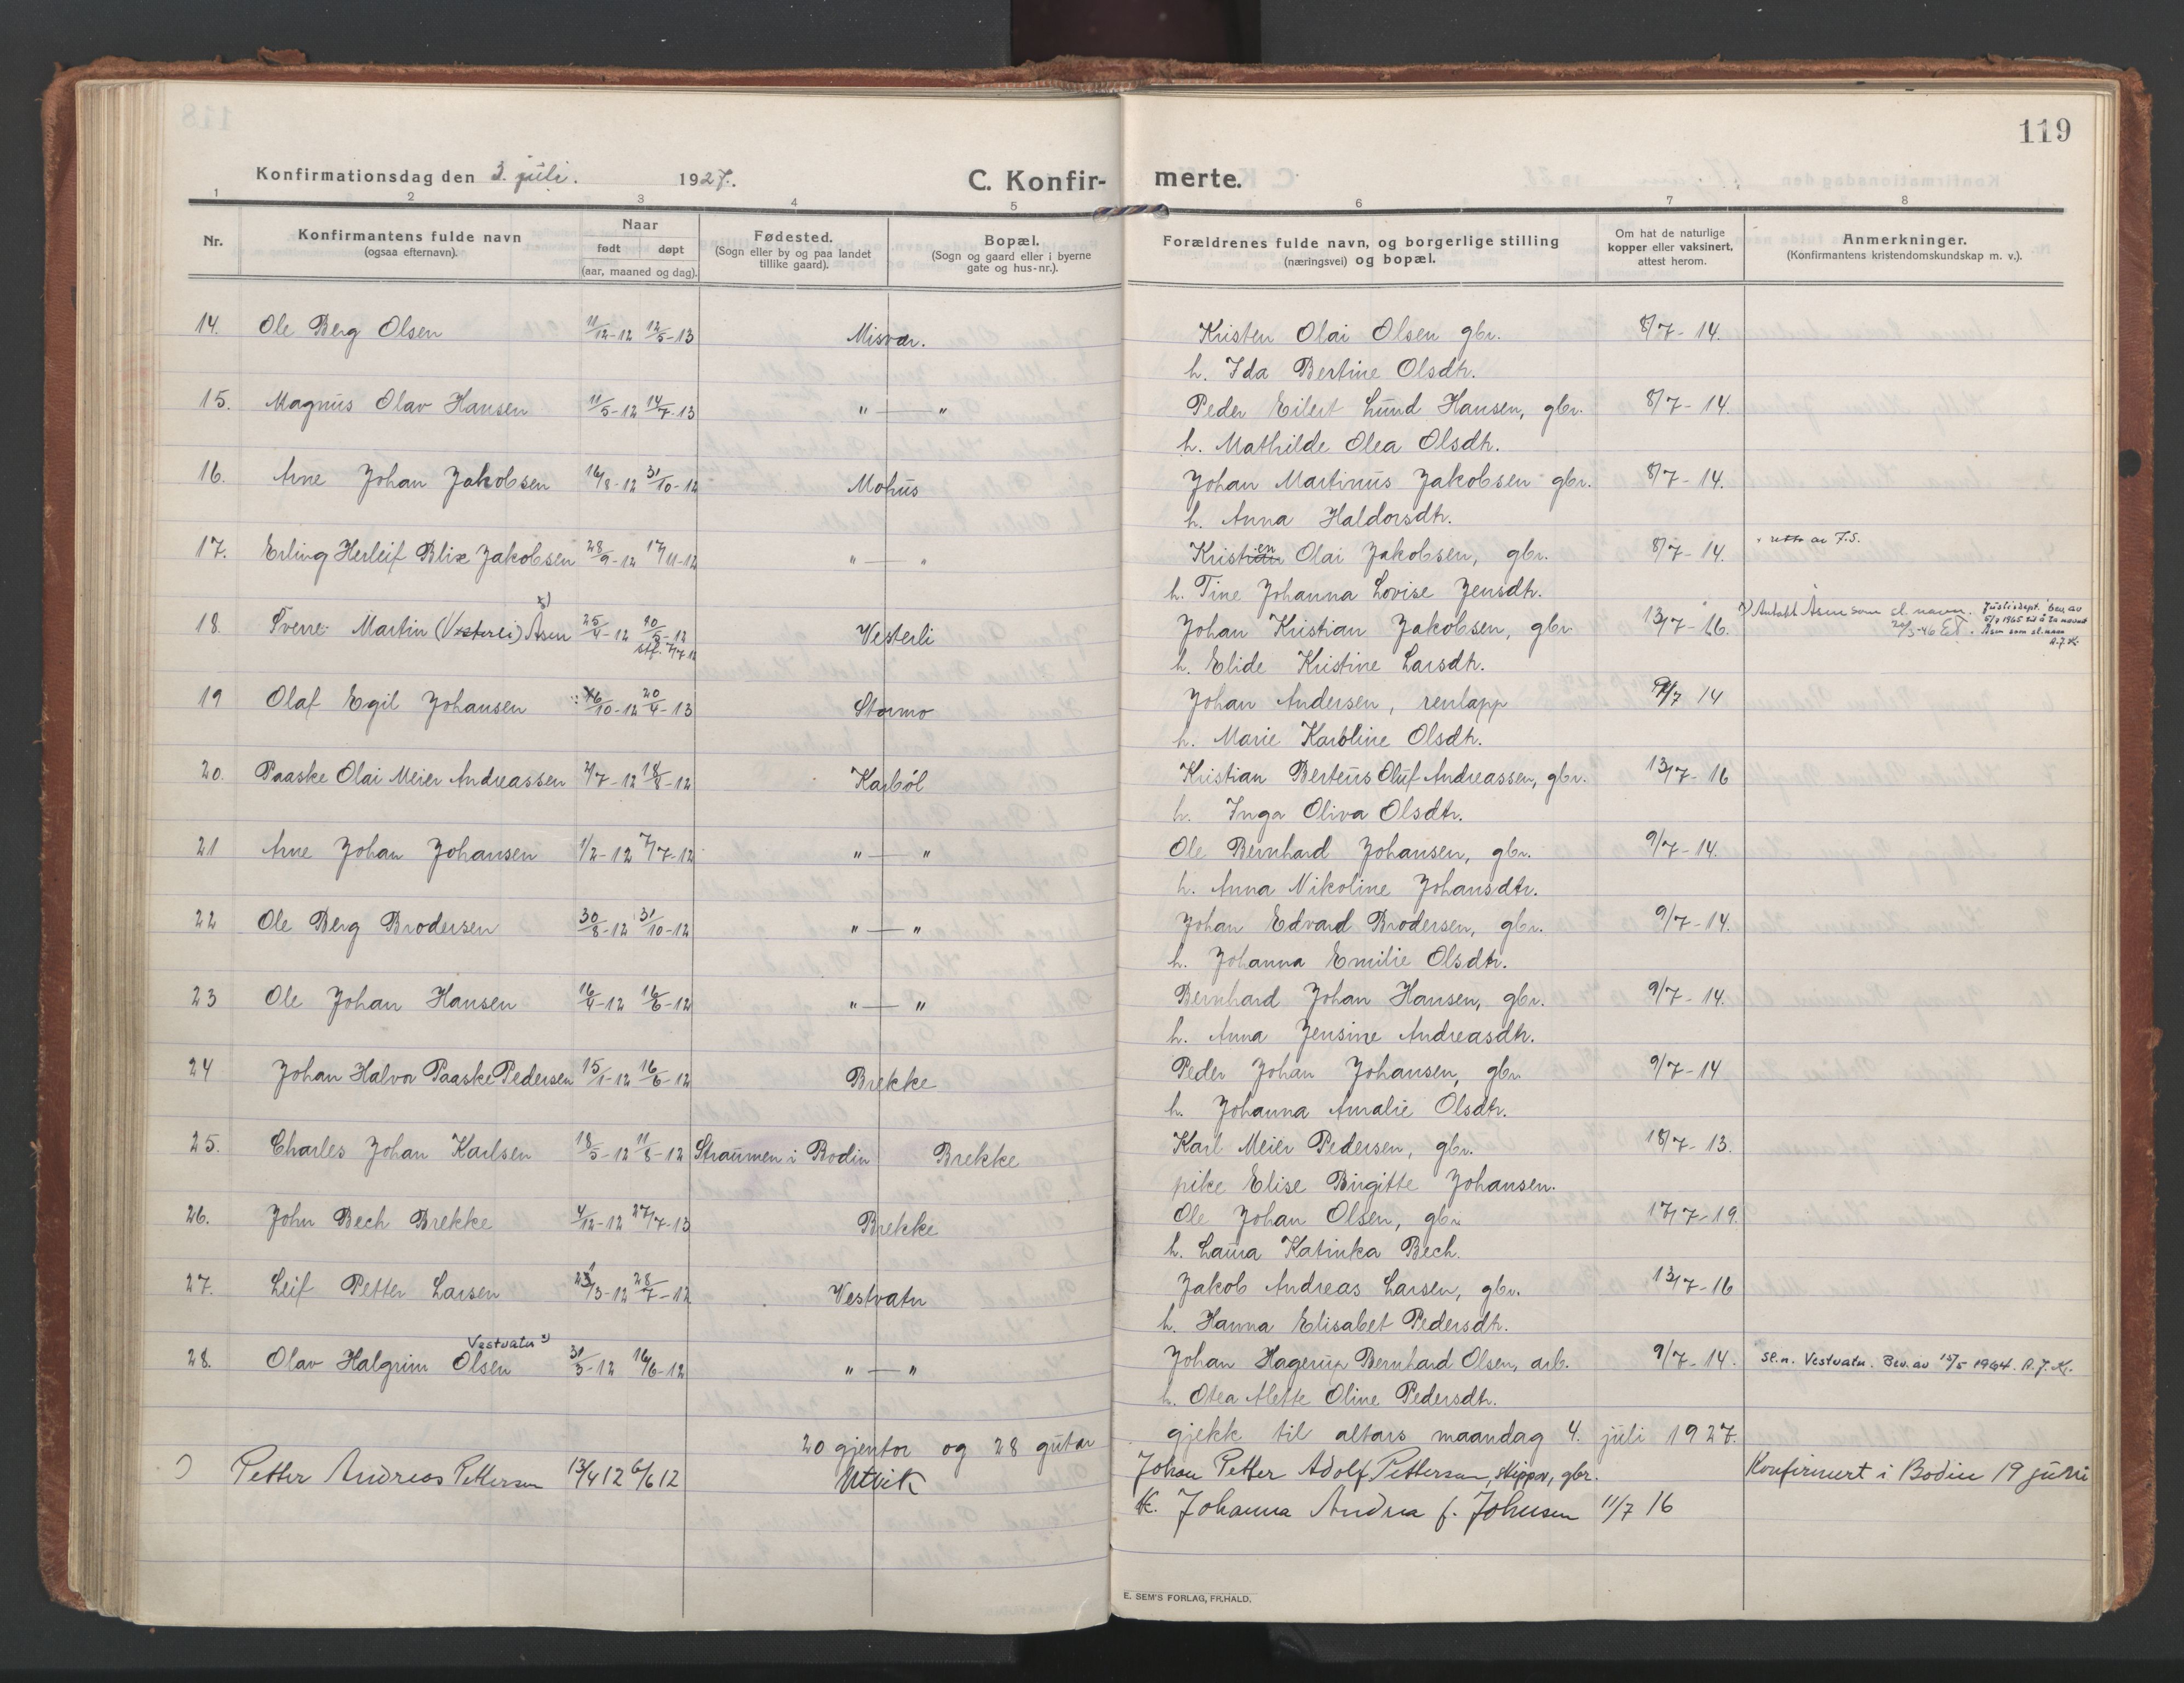 119
Konfirmationsdag den 3. juli. 1927. C. Konfir-merte.
1 2 3 4 5 6 7 8
Nr. Konfirmantens fulde navn (ogsaa efternavn). Naar født døpt (aar, maaned og dag). Fødested. (Sogn eller by og paa landet tillike gaard). Bopæl. (Sogn og gaard eller i byerne gate og hus-nr.). Forældrenes fulde navn, og borgerlige stilling (næringsvei) og bopæl. Om hat de naturlige kopper eller vaksinert, attest herom. Anmerkninger. (Konfirmantens kristendomskundskap m. v.).
14. Ole Berg Olsen 11/12-12 12/5-13 Misvær. Kristen Olai Olsen gbr. 8/7-14.
h. Ida Bertine Olsdtr.
15. Magnus Olav Hansen 11/5-12 14/7-13 " — " Peder Eilert Lund Hansen, gbr. 8/7-14.
h. Mathilde Olea Olsdtr.
16. Arne Johan Jakobsen 16/8-12 31/10-12 Mohus Johan Martinus Jakobsen gbr. 8/7-14.
h. Anna Haldorsdtr.
17. Erling Herleif Blix Jakobsen 28/9-12 17/11-12 " — " Kristen Olai Jakobsen, gbr. 8/7-14.
h. Tine Johanna Lovise Jensdtr.
18. Sverre Martin (Vesterli) Åsen x) 25/4-12 10/5-12 stf. 7/7-12 Vesterli Johan Kristian Jakobsen, gbr. 13/7-16. x) Antatt Åsen som sl. navn.
h. Elide Kristine Larsdtr.
19 Olaf Egil Johansen 16/10-12 20/4-13 Stormo Johan Andersen, renlapp 9/7 14
h. Marie Karoline Olsdtr.
20. Paaske Olai Meier Andreassen 2/7-12 18/8-12 Karbøl Kristian Berteus Oluf Andreassen, gbr. 13/7-16
h. Inga Oliva Olsdtr.
21 Arne Johan Johansen 1/2-12 7/7-12 " — " Ole Bernhard Johansen, gbr. 9/7-14.
h. Anna Nikoline Johansdtr.
22 Ole Berg Brodersen 30/8-12 31/10-12 " — " Johan Edvard Brodersen, gbr. 9/7-14.
h. Johanna Emilie Olsdtr.
23 Ole Johan Hansen 16/4-12 16/6-12 " — " Bernhard Johan Hansen, gbr. 9/7-14.
h. Anna Jensine Andreasdtr.
24 Johan Halvor Paaske Pedersen 15/1-12 16/6-12 Brekke Peder Johan Johansen, gbr. 9/7-14
h. Johanna Amalie Olsdtr.
25. Charles Johan Karlsen 18/5-12 11/8-12 Straumen i Bodin Brekke Karl Meier Pedersen, gbr. 18/7-13.
pike Elise Birgitte Johansen.
26. John Bech Brekke 4/12-12 27/7-13 Brekke Ole Johan Olsen, gbr. 17/7-19.
h. Laura Katinka Bech.
27. Leif Petter Larsen 23/3-12 28/7-12 Vestvatn Jakob Andreas Larsen, gbr. 13/7-16
h. Hanna Elisabet Pedersdtr.
Vestvatn x)
28. Olav Halgrim Olsen 31/3-12 16/6-12 " — " Johan Hagerup Bernhard Olsen, arb. 9/7-14. sl.n. Vestvatn. Bev. av 15/5 1964. A.J.K.
h. Otea Alette Oline Pedersdtr.
20 gjentor og 28 gutar gjekk til altars maandag 4. juli 1927.
Petter Andreas Pettersen 13/4 12 6/6 12 Utvik Johan Petter Adolf Pettersen, skipper, gbr. Konfirmert i Bodin 19 juni
k. Johanna Andrea f. Johnsen 11/7 16
E. SEM'S FORLAG, FR.HALD.